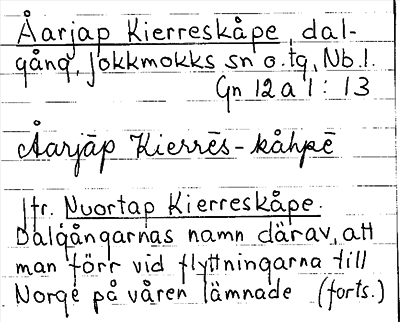 Åarjap Kierreskåpe, dal-
gång, Jokkmokks sn o. tg, Nb. l.
Gn 12 a 1 : 13
Åarjāp Kierrēs-kåhpē
Jfr. Nuortap Kierreskåpe.
Dalgångarnas namn därav, att
man förr vid flyttningarna till
Norge på våren lämnade (forts.)